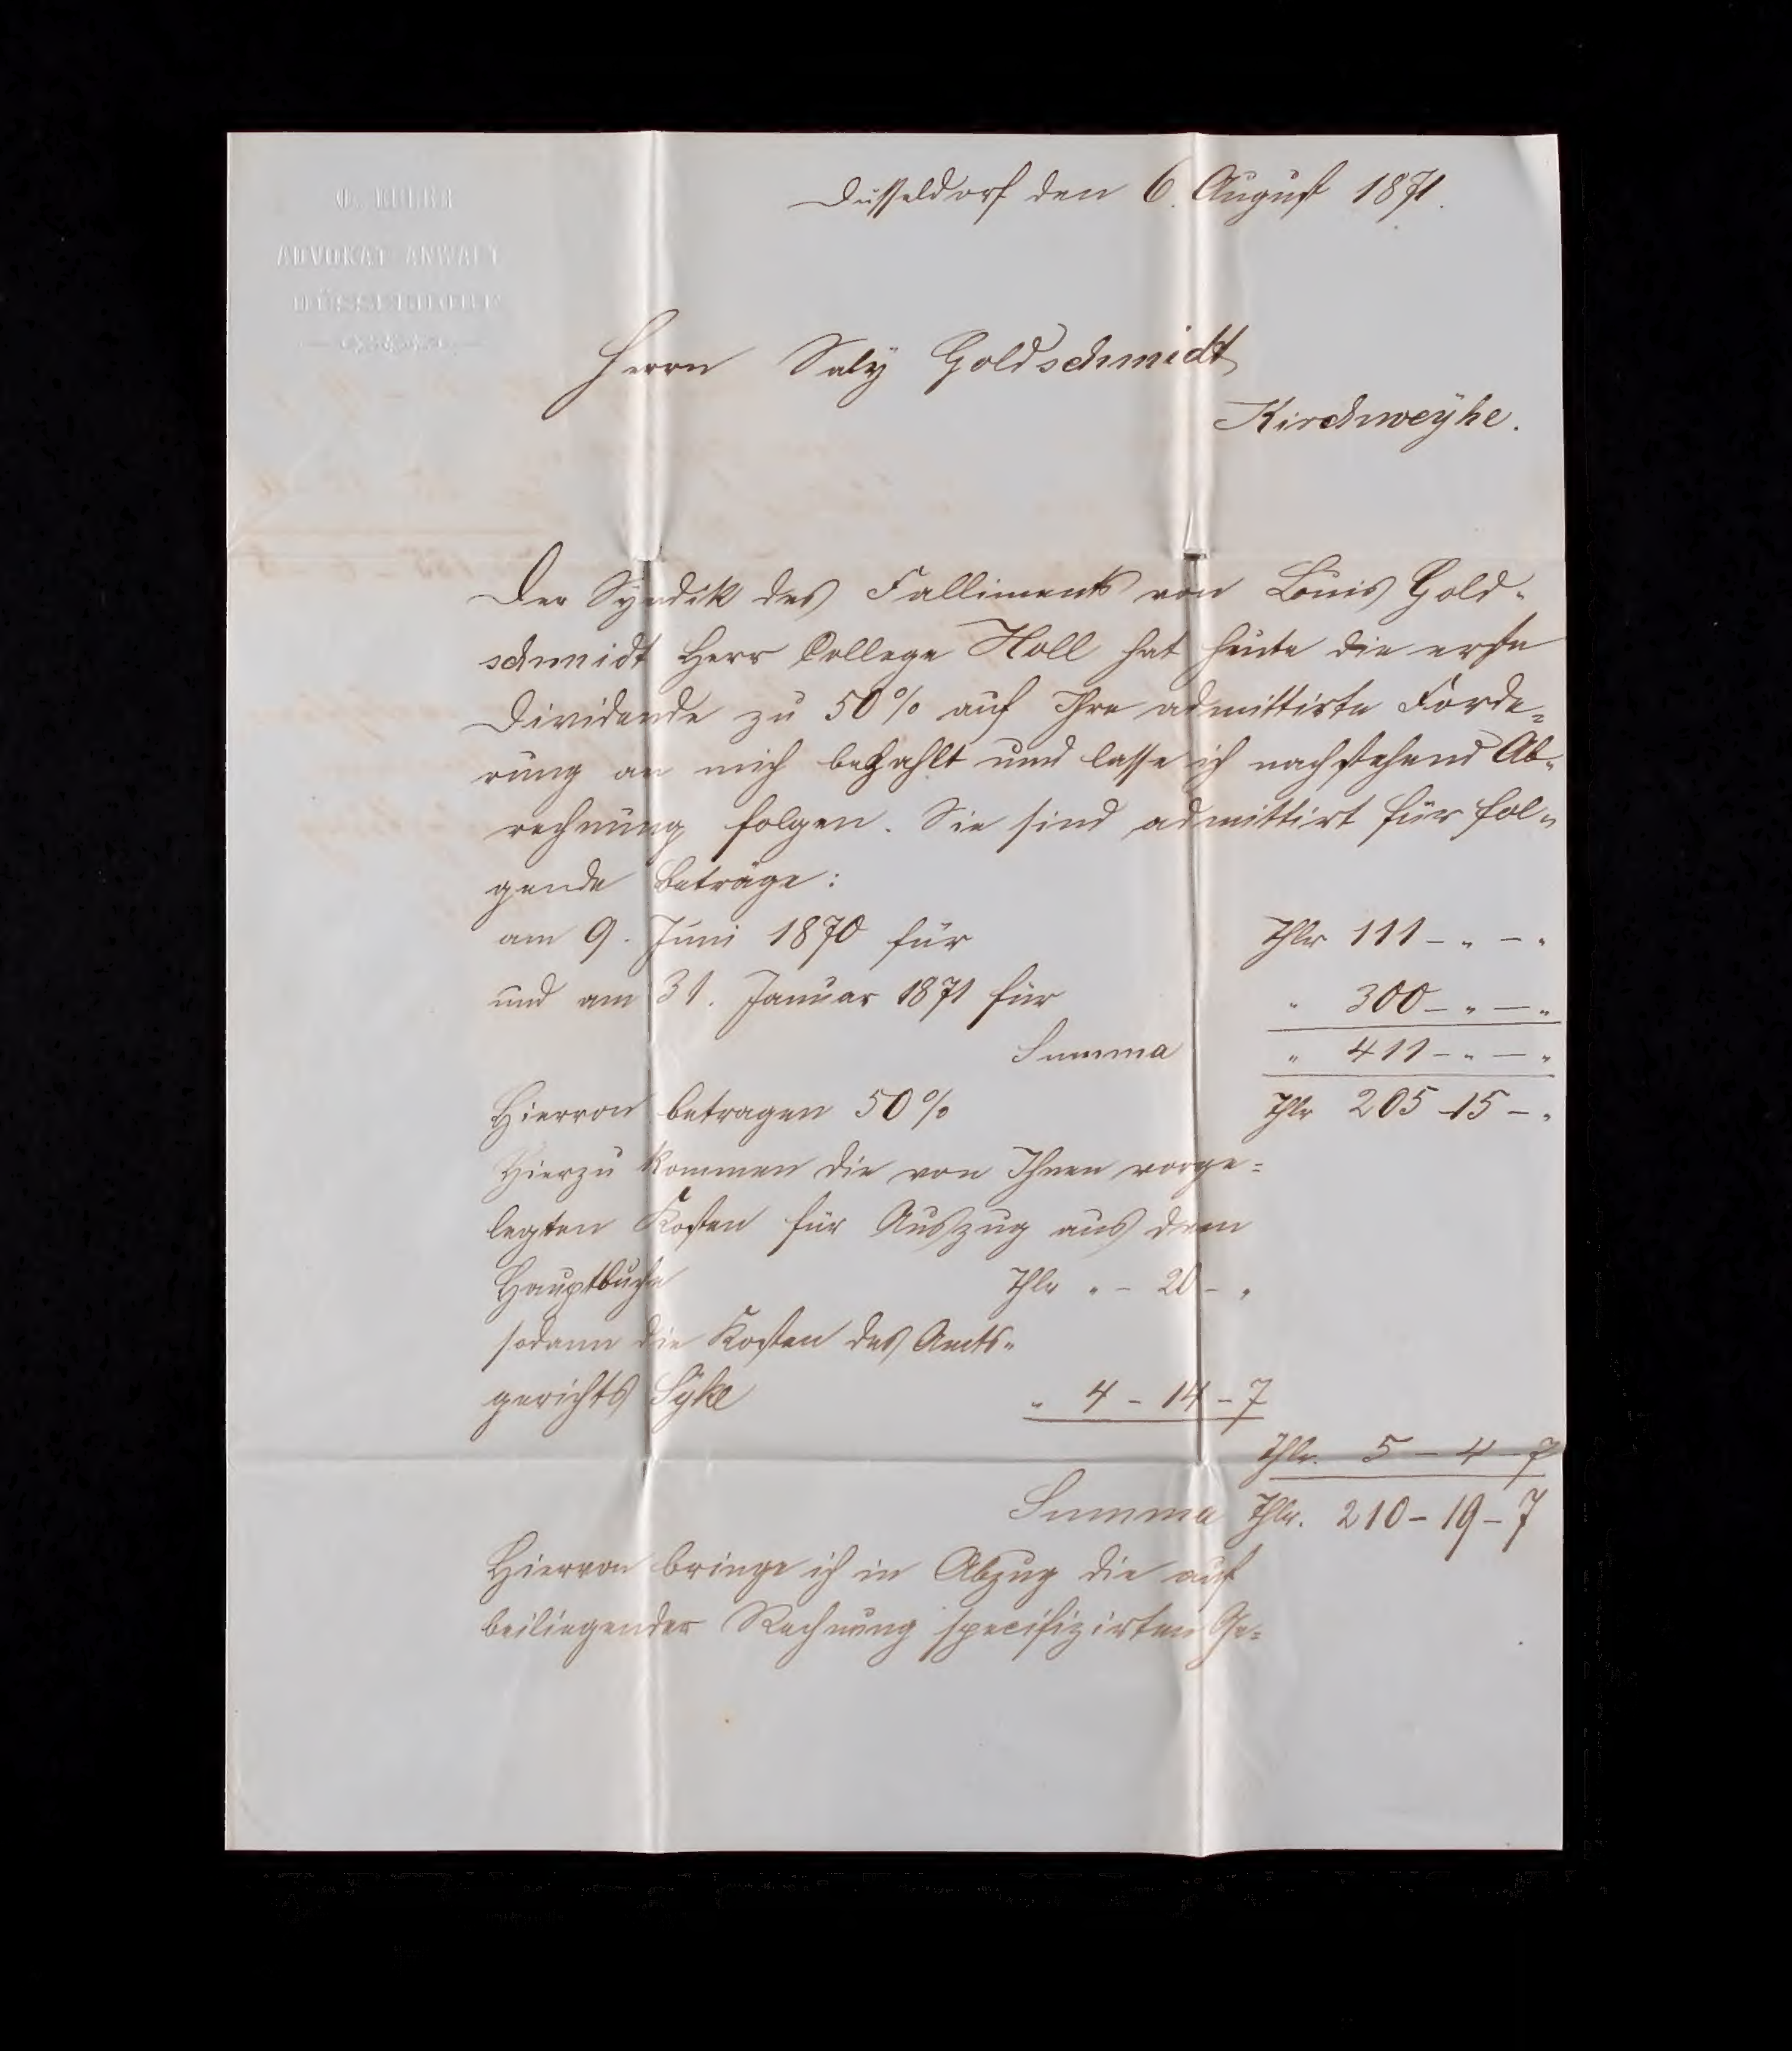 ADVOKAT ANWALT
DÜSSELDORF
Düsseldorf den 6. August 1871.
Herrn Saly Goldschmidt
Kirchweyhe.
Der Syndik des Falliments von Louis Gold-
schmidt Herr College Holl hat heute die erste
Dividende zu 50% auf Ihre admittirte Forde=
rung an mich bezahlt und lasse ich nachstehend Ab-
rechnung folgen. Sie sind admittirt für fol-
gende Beträge:
am 9. Juni 1870 für Thlr 111 - " - "
und am 31. Januar 1871 für " 300 - " - "
Summa " 411 - " - "
Hiervon betragen 50% Thlr 205 - 15 - "
Hierzu kommen die von Ihnen vorge=
legten Kosten für Auszug aus dem
Hauptbuche Thlr " - 20 - "
sodann die Kosten des Amts-
gerichts Syke " 4 - 14 - 7
Thlr. 5 - 4 - 7
Summa Thlr. 210 - 19 - 7
Hiervon bringe ich in Abzug die auf
beiliegender Rechnung specifizirten Ge=